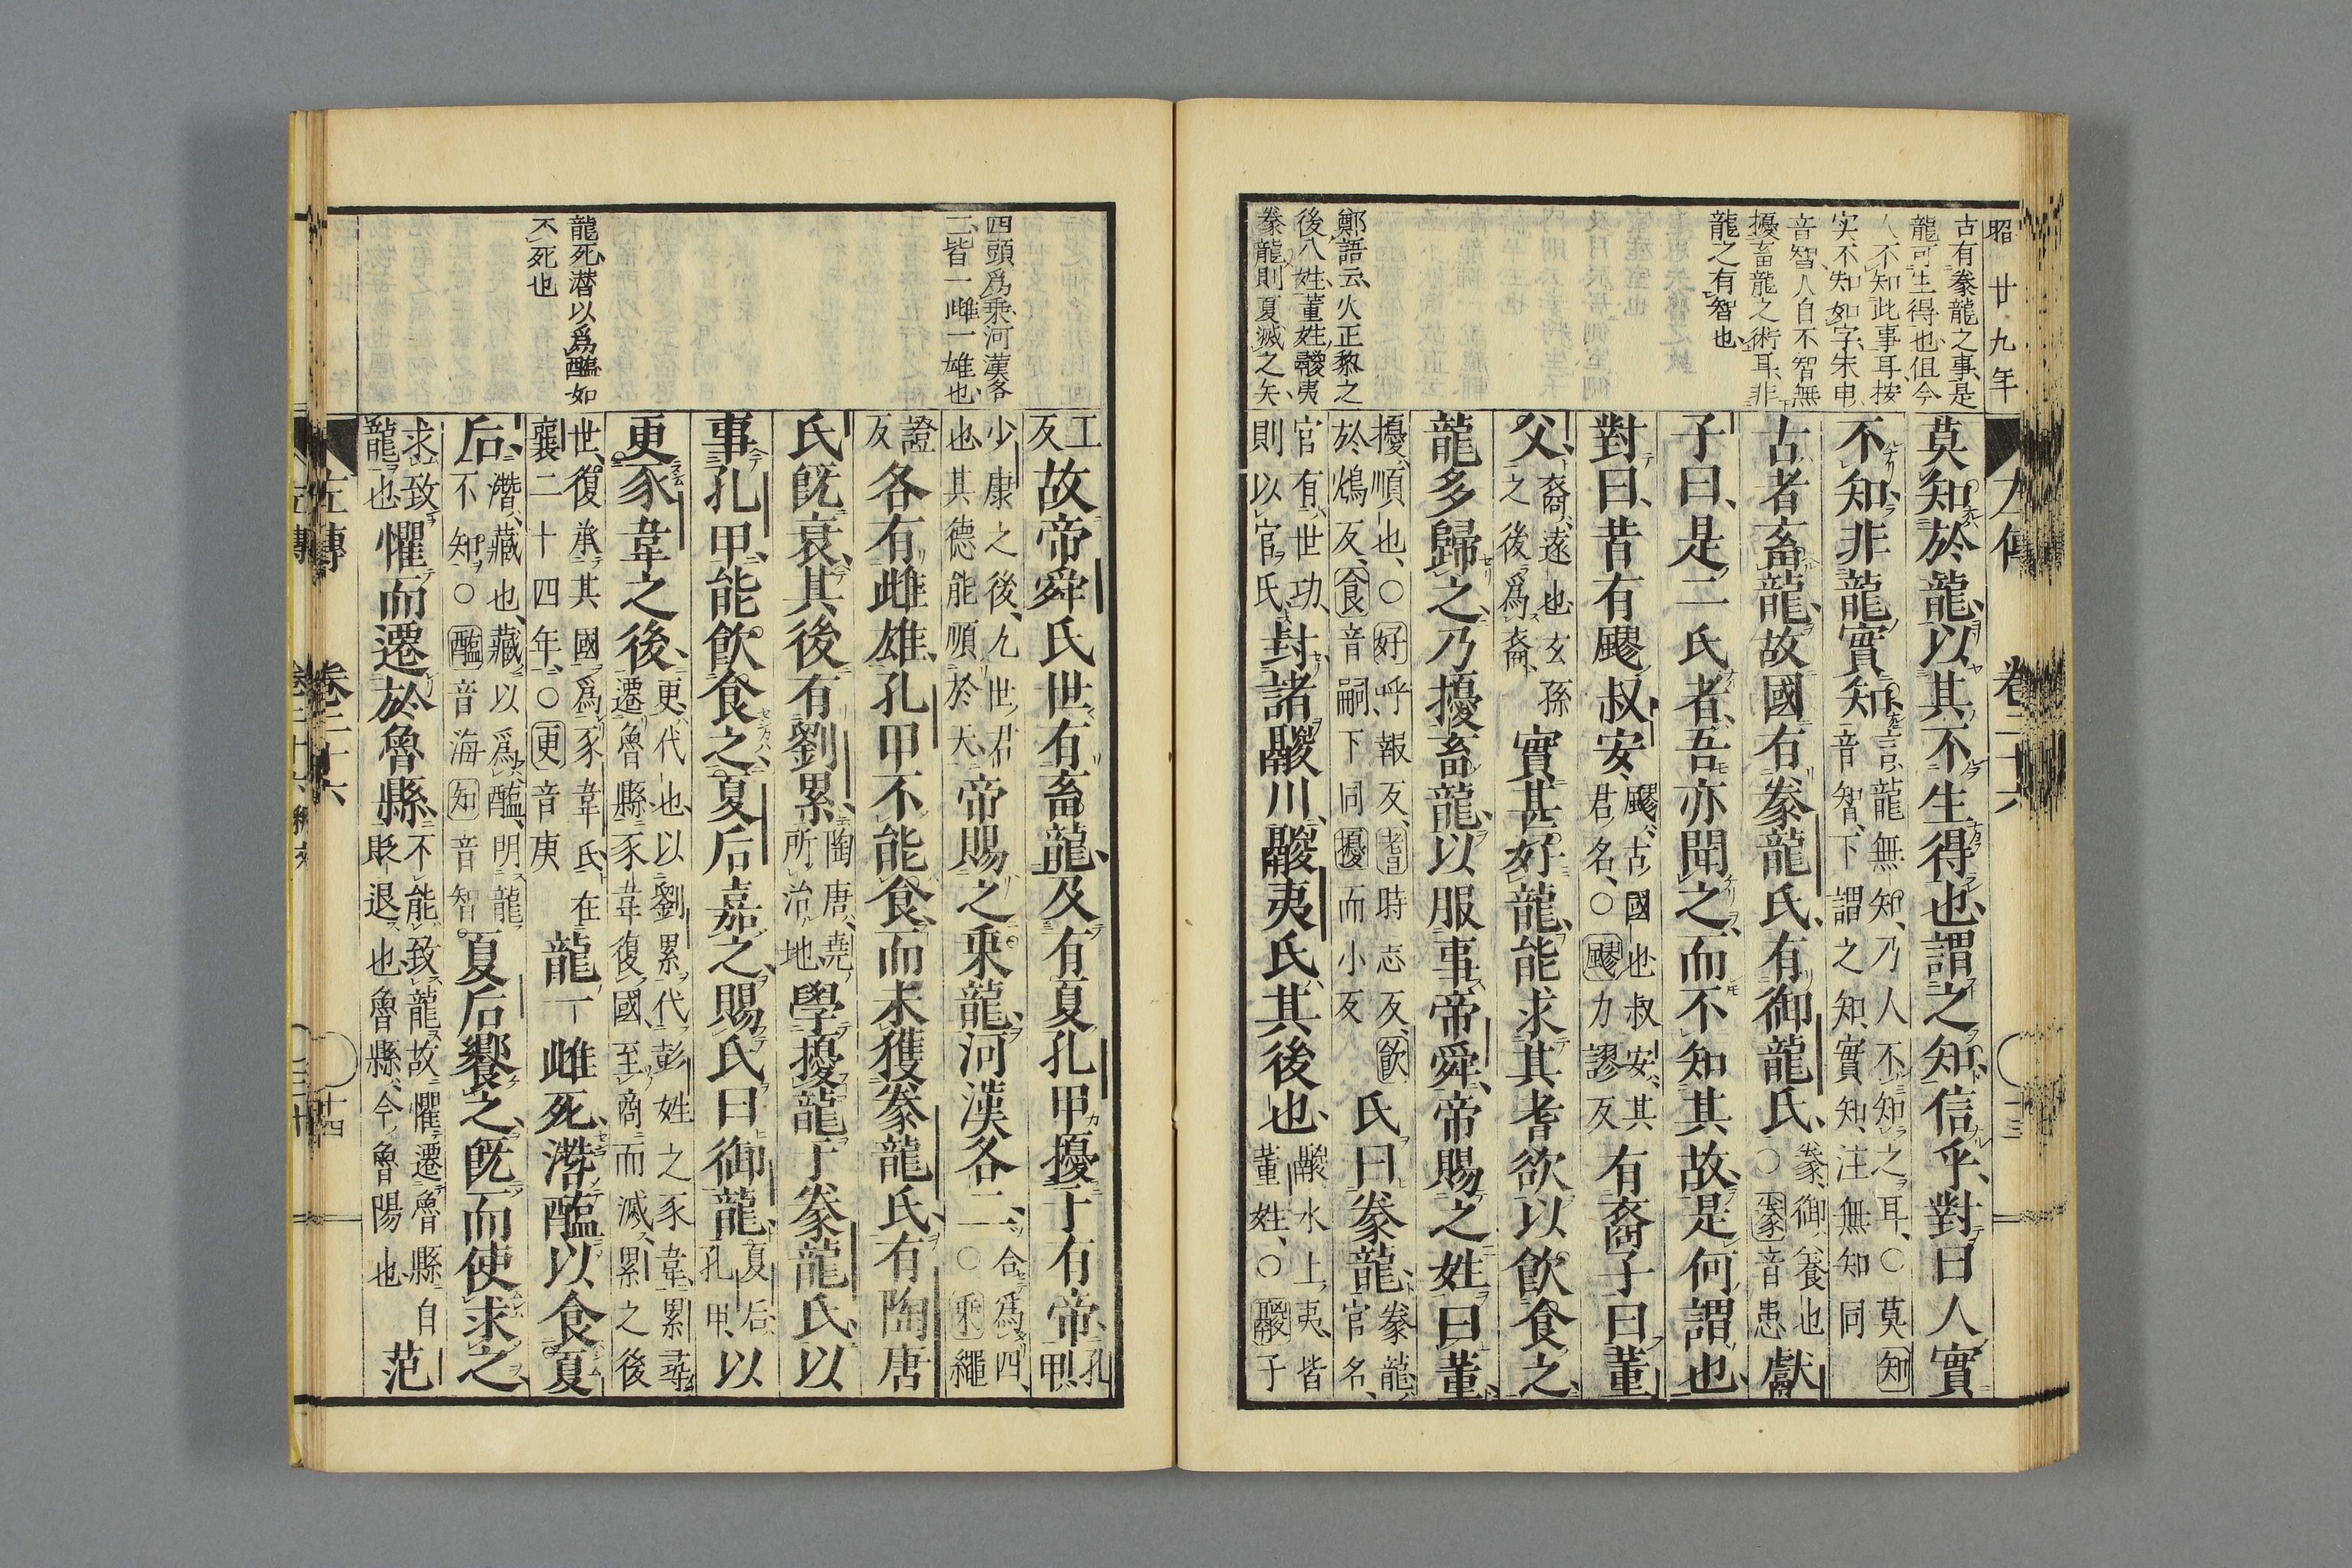 昭廿九年
古有豢龍之事是
龍可生得也但今
人不知此事耳按
实不知如字朱申
音智人自不智無
擾畜龍之術耳非
龍之有智也
鄭語云火正黎之
後八姓董姓鬷夷
豢龍則夏滅之矣
左傳 卷二十六 十三
莫知於龍以其不生得也謂之知信乎對曰人實
不知非龍實知
言龍無知乃人不知之耳○莫知
音智下謂之知實知注無知同
古者畜龍故國有豢龍氏有御龍氏
豢御養也
○豢音患
獻
子曰是二氏者吾亦聞之而不知其故是何謂也
對曰昔有飂叔安
飂古國也叔安其
君名○飂力謬反
有裔子曰董
父
裔遠也玄孫
之後爲裔
實甚好龍能求其耆欲以飲食之
龍多歸之乃擾畜龍以服事帝舜帝賜之姓曰董
擾順也○好呼報反耆時志反飲
於鴆反食音嗣下同擾而小反
氏曰豢龍
豢龍
官名
官有世功
則以官氏
封諸鬷川鬷夷氏其後也
鬷水上夷皆
董姓○鬷子
四頭爲乘河漢各
二皆一雌一雄也
龍死潛以爲醢如
不死也
工
反
故帝舜氏世有畜龍及有夏孔甲擾于有帝
孔
甲
少康之後九世君
也其德能順於天
帝賜之乘龍河漢各二
合爲四
○乘繩
證
反
各有雌雄孔甲不能食而未獲豢龍氏有陶唐
氏既衰其後有劉累
陶唐堯
所治地
學擾龍于豢龍氏以
事孔甲能飲食之夏后嘉之賜氏曰御龍
夏后
孔甲
以
更豕韋之後
更代也以劉累代彭姓之豕韋累尋
遷魯縣豕韋復國至商而滅累之後
世復承其國爲豕韋氏在
襄二十四年○更音庚
龍一雌死潛醢以食夏
后
潛藏也藏以爲醢明龍
不知○醢音海知音智
夏后饗之既而使求之
求致
龍也
懼而遷於魯縣
不能致龍故懼遷魯縣自
貶退也魯縣今魯陽也
范
左傳 卷二十六 十四